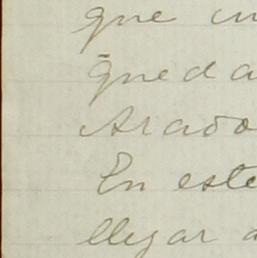 que cu
queda
Arado
En este
llegar a